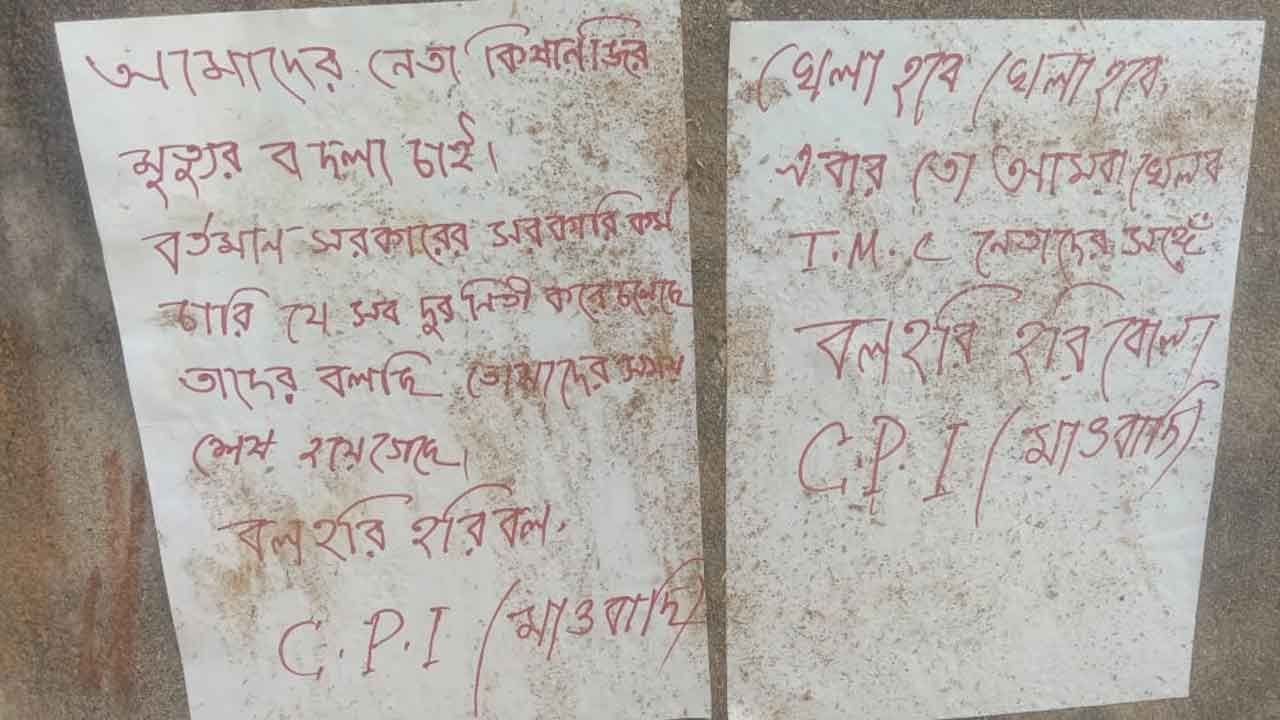 আমাদের নেতা কিষানজির
মৃত্যুর বদলা চাই।
বর্তমান সরকারের সরকারি কর্ম
চারি যে সব দুরনিতী করে চলেছে
তাদের বলছি তোমাদের সময়
শেষ হয়ে গেছে।
বল হরি হরি বল,
C.P.I (মাওবাদি)
খেলা হবে খেলা হবে,
এবার তো আমরা খেলব
T.M.C নেতাদের সঙ্গে
বল হরি হরি বোল
C.P.I (মাওবাদি)